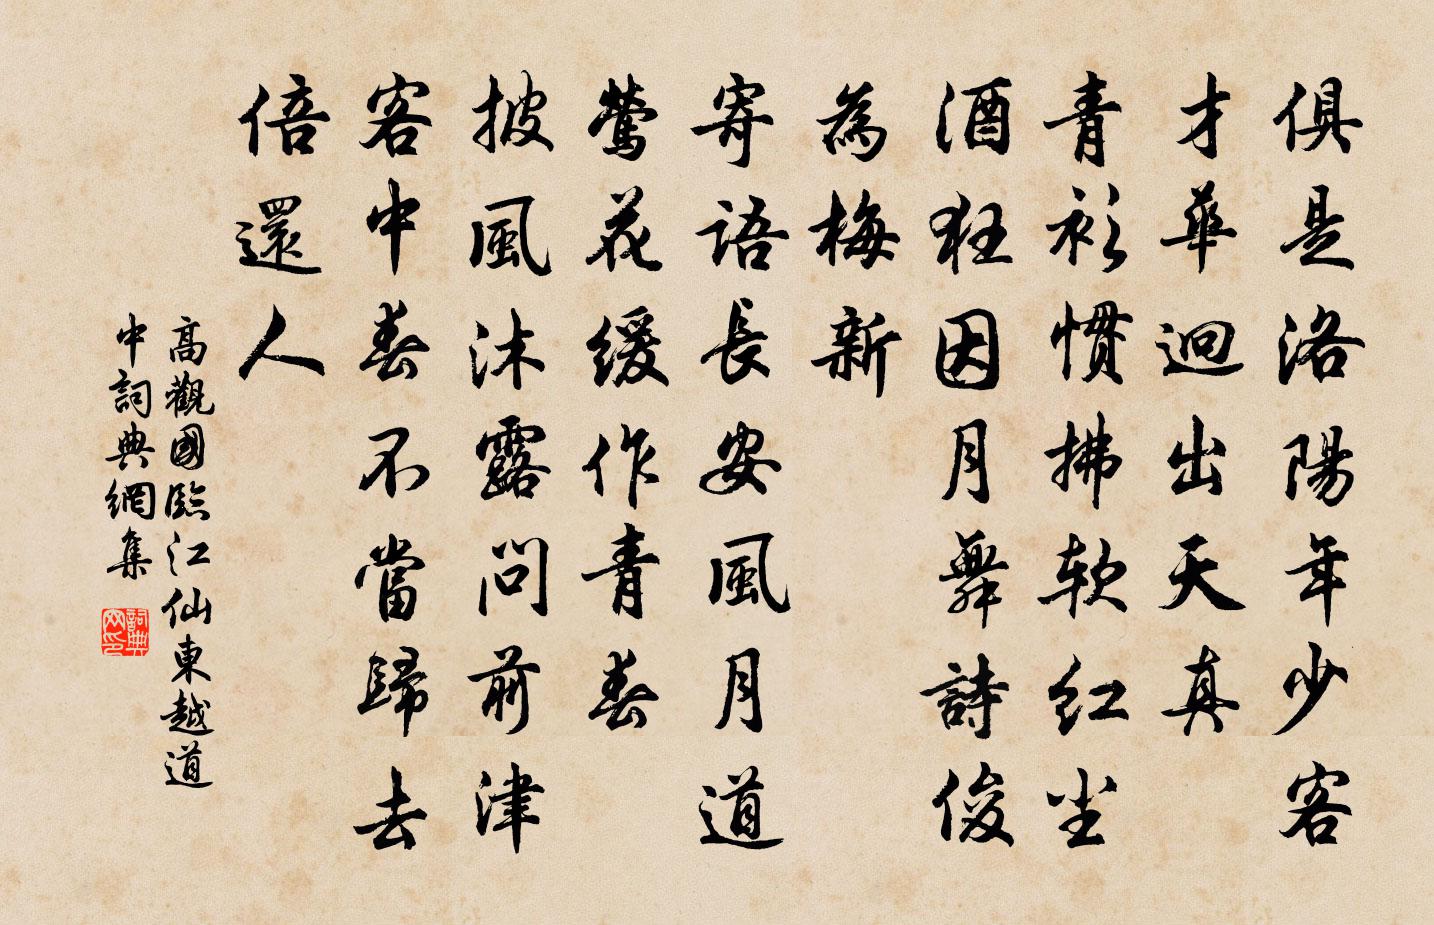 俱是洛陽年少客
才華迥出天真
青衫慣拂软红尘
酒狂因月舞詩俊
為梅新
寄語長安風月道
鶯花缓作青春
披風沐露問前津
客中春不當歸去
倍還人
高觀國臨江仙東越道
中詞典網集
詞典網印